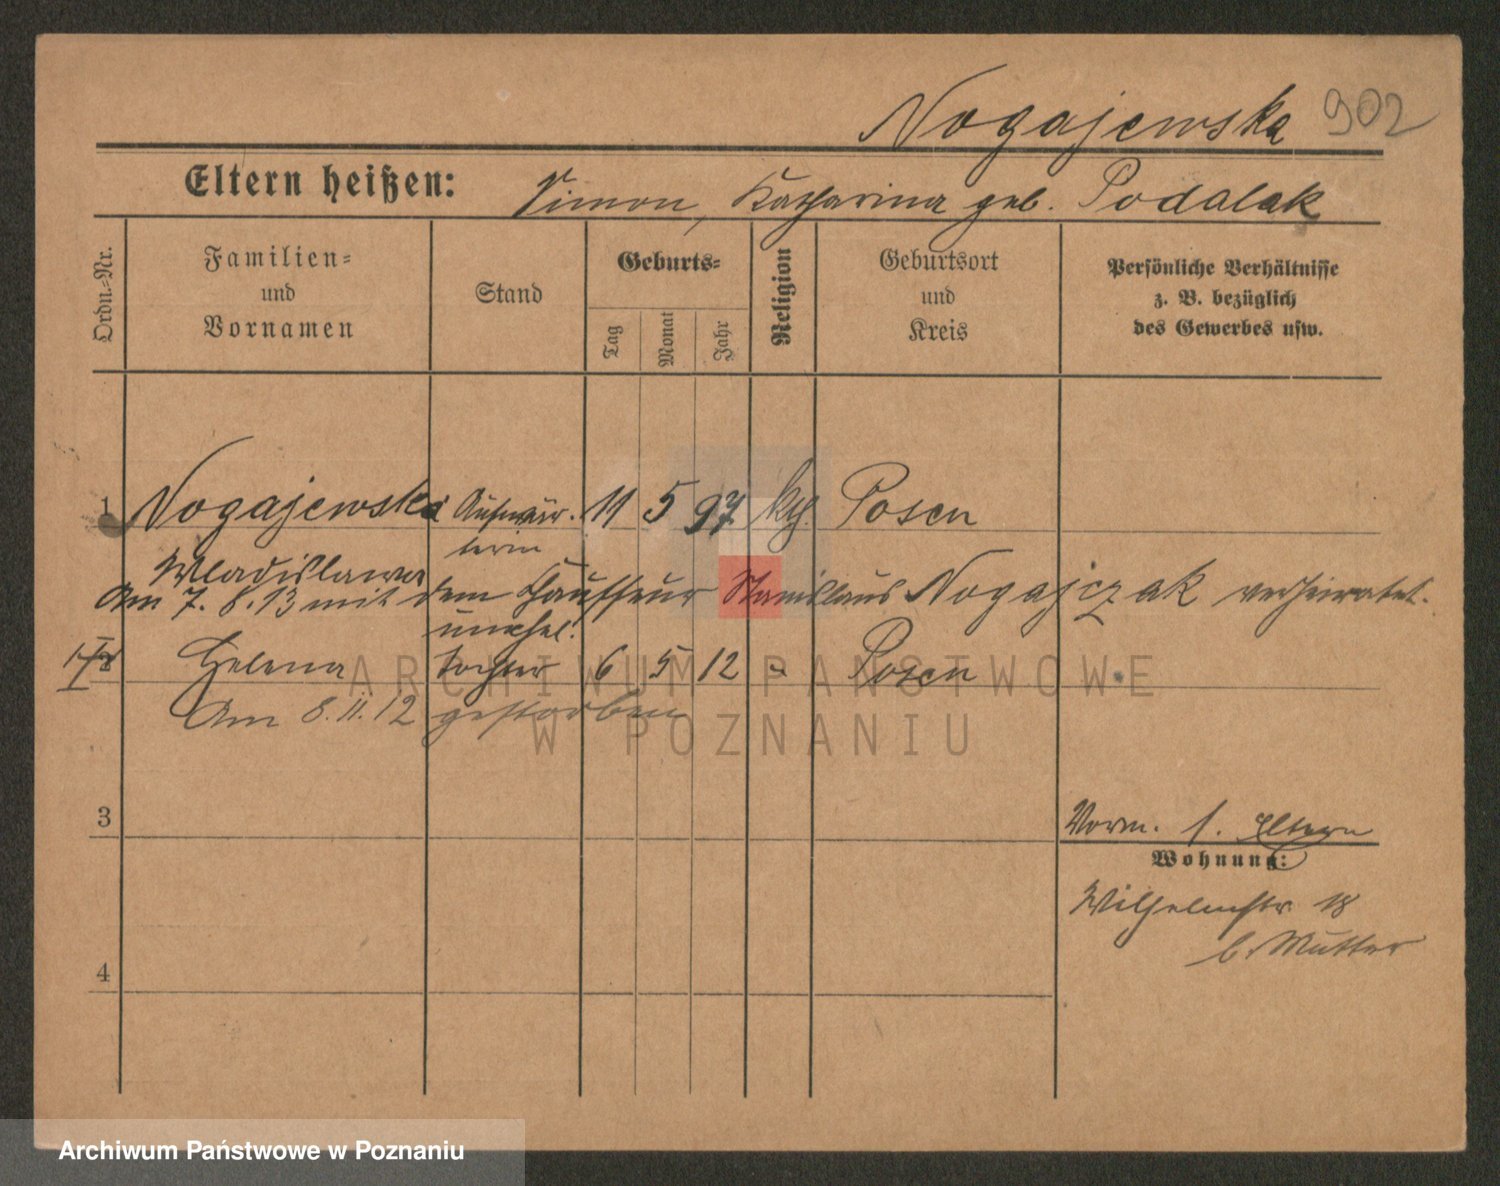 Nogajewska 902
Eltern heißen: Simon, Katharina geb. Podalak
Ordn.-Nr.
Familien-
und
Vornamen
Stand
Geburts-
Tag
Monat
Jahr
Religion
Geburtsort
und
Kreis
Persönliche Verhältnisse
z. B. bezüglich
des Gewerbes usw.
1 Nogajewska Aufwär- 11 5 97 kth. Posen
Wladislawa terin
Am 7. 8. 13 mit dem Chauffeur Stanislaus Nogajczak verheiratet.
unehel.
2 Helena Tochter 6 5 12 Posen
Am 8. 11. 12 gestorben
3
Vorm. s. Eltern
Wohnung:
Wilhelmstr 18
b. Mutter
4
ARCHIWUM PAŃSTWOWE
W POZNANIU
Archiwum Państwowe w Poznaniu